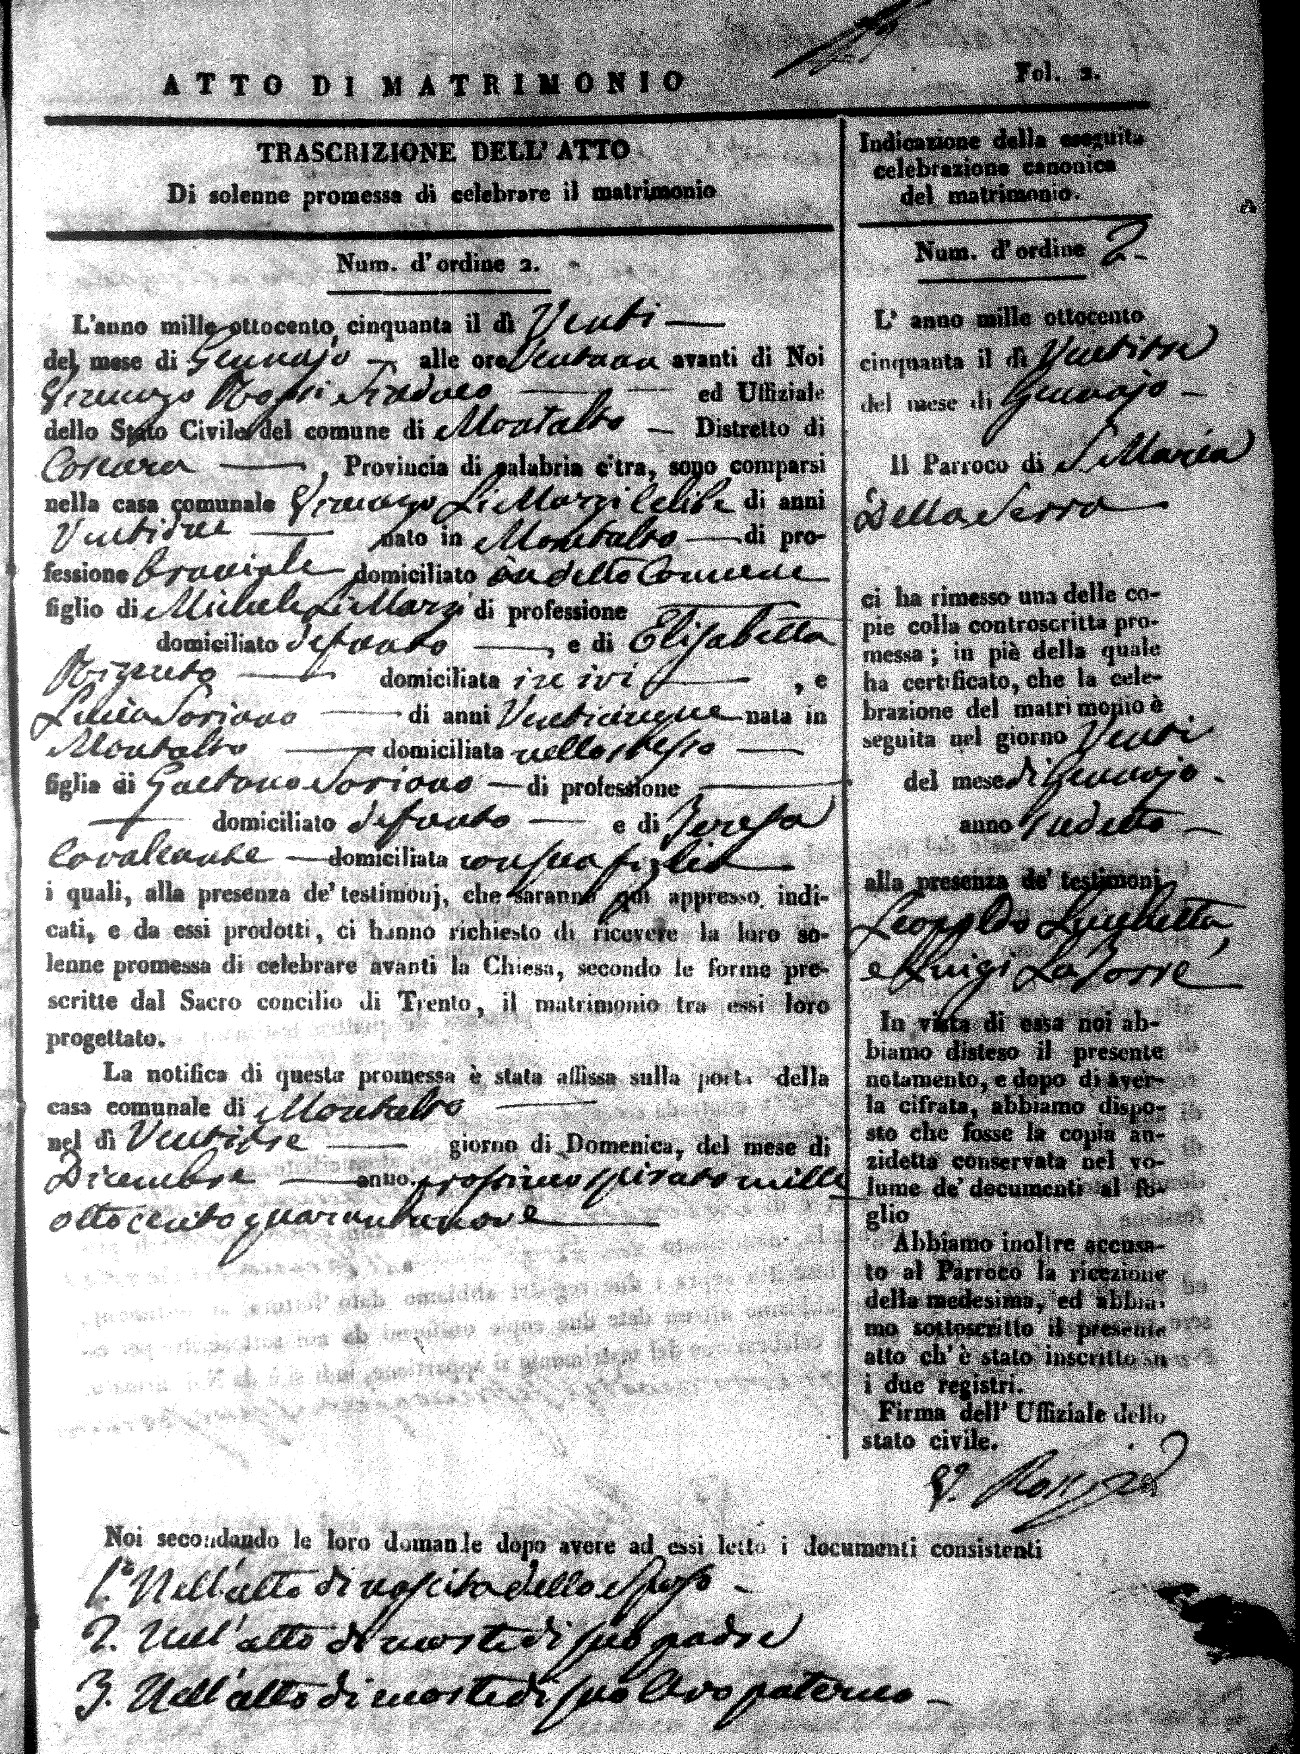 ATTO DI MATRIMONIO
Fol. 2.
TRASCRIZIONE DELL' ATTO
Di solenne promessa di celebrare il matrimonio
Num. d'ordine 2.
L'anno mille ottocento cinquanta il dì Venti
del mese di Gennajo alle ore Ventuna avanti di Noi
Gennaro Rossi Sindaco ed Uffiziale
dello Stato Civile del comune di Montalto Distretto di
Cosenza, Provincia di Calabria c'tra, sono comparsi
nella casa comunale Gennaro Li Marzi Celibe di anni
Ventidue nato in Montalto di pro-
fessione Bracciale domiciliato in detto Comune
figlio di Michele Li Marzi di professione
domiciliato defonto, e di Elisabetta
domiciliata in ivi, e
Lucia Soriano di anni Venticinque nata in
Montalto domiciliata nello stesso
figlia di Gaetano Soriano di professione
domiciliato defonto e di Teresa
Cavalcante domiciliata con sua figlia
i quali, alla presenza de' testimonj, che saranno qui appresso indi-
cati, e da essi prodotti, ci hanno richiesto di ricevere la loro so-
lenne promessa di celebrare avanti la Chiesa, secondo le forme pre-
scritte dal Sacro concilio di Trento, il matrimonio tra essi loro
progettato.
La notifica di questa promessa è stata affissa sulla porta della
casa comunale di Montalto
nel dì Ventitre giorno di Domenica, del mese di
Dicembre anno prossimo spirato mille
ottocento quarantanove
Indicazione della eseguita
celebrazione canonica
del matrimonio.
Num. d'ordine 2.
L' anno mille ottocento
cinquanta il dì Ventitre
del mese di Gennajo
Il Parroco di S. Maria
Della Serra
ci ha rimesso una delle co-
pie colla controscritta pro-
messa; in piè della quale
ha certificato, che la cele-
brazione del matrimonio è
seguita nel giorno Venti
del mese di Gennajo
anno sudetto
alla presenza de' testimonj
Leopoldo Luchetta
e Luigi La Torre
In vista di essa noi ab-
biamo disteso il presente
notamento, e dopo di aver-
la cifrata, abbiamo dispo-
sto che fosse la copia an-
zidetta conservata nel vo-
lume de' documenti al fo-
glio
Abbiamo inoltre accusa-
to al Parroco la ricezione
della medesima, ed abbia-
mo sottoscritto il presente
atto ch' è stato inscritto su
i due registri.
Firma dell' Uffiziale dello
stato civile.
G. Rossi
Noi secondando le loro domande dopo avere ad essi letto i documenti consistenti
1.° Nell'atto di nascita dello sposo
2. Nell'atto di morte di suo padre
3. Nell'atto di morte di suo Avo paterno